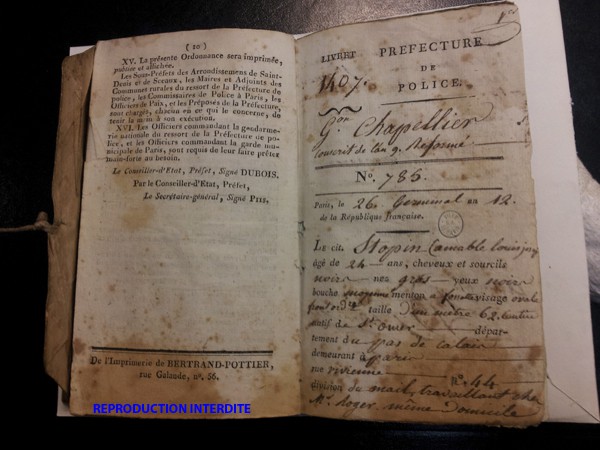 ( 20 )
XV. La présente Ordonnance sera imprimée,
publiée et affichée.
Les Sous-Préfets des Arrondissemens de Saint-
Denis et de Sceaux, les Maires et Adjoints des
Communes rurales du ressort de la Préfecture de
police, les Commissaires de Police à Paris, les
Officiers de Paix, et les Préposés de la Préfecture,
sont chargés, chacun en ce qui le concerne, de
tenir la main à son exécution.
XVI. Les Officiers commandant la gendarme-
rie nationale du ressort de la Préfecture de po-
lice, et les Officiers commandant la garde mu-
nicipale de Paris, sont requis de leur faire prêter
main-forte au besoin.
Le Conseiller-d'Etat, Préfet, Signé DUBOIS.
Par le Conseiller-d'Etat, Préfet,
Le Secrétaire-général, Signé PIIS.
De l'Imprimerie de BERTRAND-POTTIER,
rue Galande, no. 56.
LIVRET PREFECTURE
1407. DE
POLICE.
Gon Chapellier
Conscrit de l'an 9. Reformé
No. 785.
Paris, le 26 Germinal an 12.
de la République française.
LE cit. Stopin (amable louis
âgé de 24 ans, cheveux et sourcils
noirs nez gros yeux noirs
bouche moyenne menton à fossette visage ovale
front ord.re taille d'un mètre 62
natif de St. omer dépar-
tement du pas de calais
demeurant à paris
rue vivienne no. 44
division du mail, travaillant chez
Mr. Roger même domicile
REPRODUCTION INTERDITE